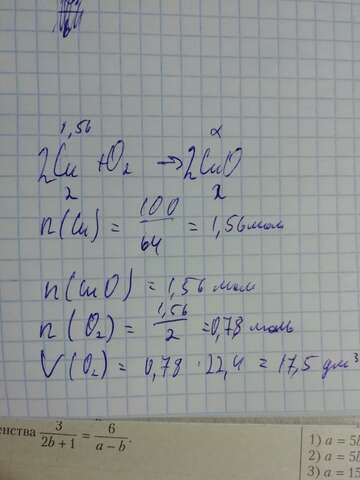 1,56 x
2Cu + O₂ → 2CuO
2 2
n(Cu) = 100/64 = 1,56 моль
n(CuO) = 1,56 моль
n(O₂) = 1,56/2 = 0,78 моль
V(O₂) = 0,78 · 22,4 = 17,5 дм³
енства 3/(2b + 1) = 6/(a – b).
1) a = 5b
2) a = 5b
3) a = 15